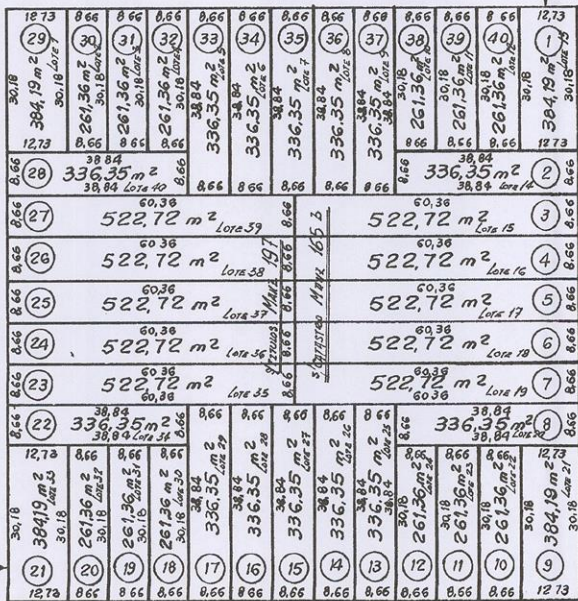 12,73 8,66 8,66 8,66 8,66 8,66 8,66 8,66 8,66 8,66 8,66 8,66 12,73
29 30 31 32 33 34 35 36 37 38 39 40 1
30,18 384,19 m² 30,18 Lote 1
261,36 m² 30,18
261,36 m² 30,18
261,36 m² 30,18
38,84 336,35 m² Lote 5
38,84 336,35 m² Lote 6
38,84 336,35 m² Lote 7
38,84 336,35 m² Lote 8
38,84 336,35 m² 38,84 Lote 9
30,18 261,36 m² Lote 10
30,18 261,36 m² Lote 11
30,18 261,36 m² Lote 12
30,18 384,19 m² 30,18 Lote 13
12,73 8,66 8,66 8,66 8,66 8,66 8,66 8,66 8,66 8,66 8,66 8,66 12,73
8,66 28 38,84 336,35 m² 38,84 Lote 40 8,66
8,66 38,84 336,35 m² 38,84 Lote 14 2 8,66
8,66 27 60,36 522,72 m² Lote 39 8,66
60,36 522,72 m² Lote 15 3 8,66
8,66 26 60,36 522,72 m² Lote 38 8,66
60,36 522,72 m² Lote 16 4 8,66
8,66 25 60,36 522,72 m² Lote 37 8,66
60,36 522,72 m² Lote 17 5 8,66
8,66 24 60,36 522,72 m² Lote 36 8,66
60,36 522,72 m² Lote 18 6 8,66
8,66 23 60,36 522,72 m² 60,36 Lote 35 8,66
60,36 522,72 m² 60,36 Lote 19 7 8,66
s/Titulos Manz 197
s/Catastro Manz 165 b
8,66 22 38,84 336,35 m² 38,84 Lote 34 8,66
8,66 38,84 336,35 m² 38,84 8 8,66
12,73 8,66 8,66 8,66 8,66 8,66 8,66 8,66 8,66 8,66 8,66 8,66 12,73
30,18 384,19 m² 30,18 Lote 33
261,36 m² 30,18 Lote 32
261,36 m² 30,18 Lote 31
261,36 m² 30,18 Lote 30
38,84 336,35 m² Lote 29
38,84 336,35 m² Lote 28
38,84 336,35 m² Lote 27
38,84 336,35 m² Lote 26
38,84 336,35 m² 38,84 Lote 25
30,18 261,36 m² Lote 24
30,18 261,36 m² Lote 23
30,18 261,36 m² Lote 22
30,18 384,19 m² 30,18 Lote 21
21 20 19 18 17 16 15 14 13 12 11 10 9
12,73 8,66 8,66 8,66 8,66 8,66 8,66 8,66 8,66 8,66 8,66 8,66 12,73